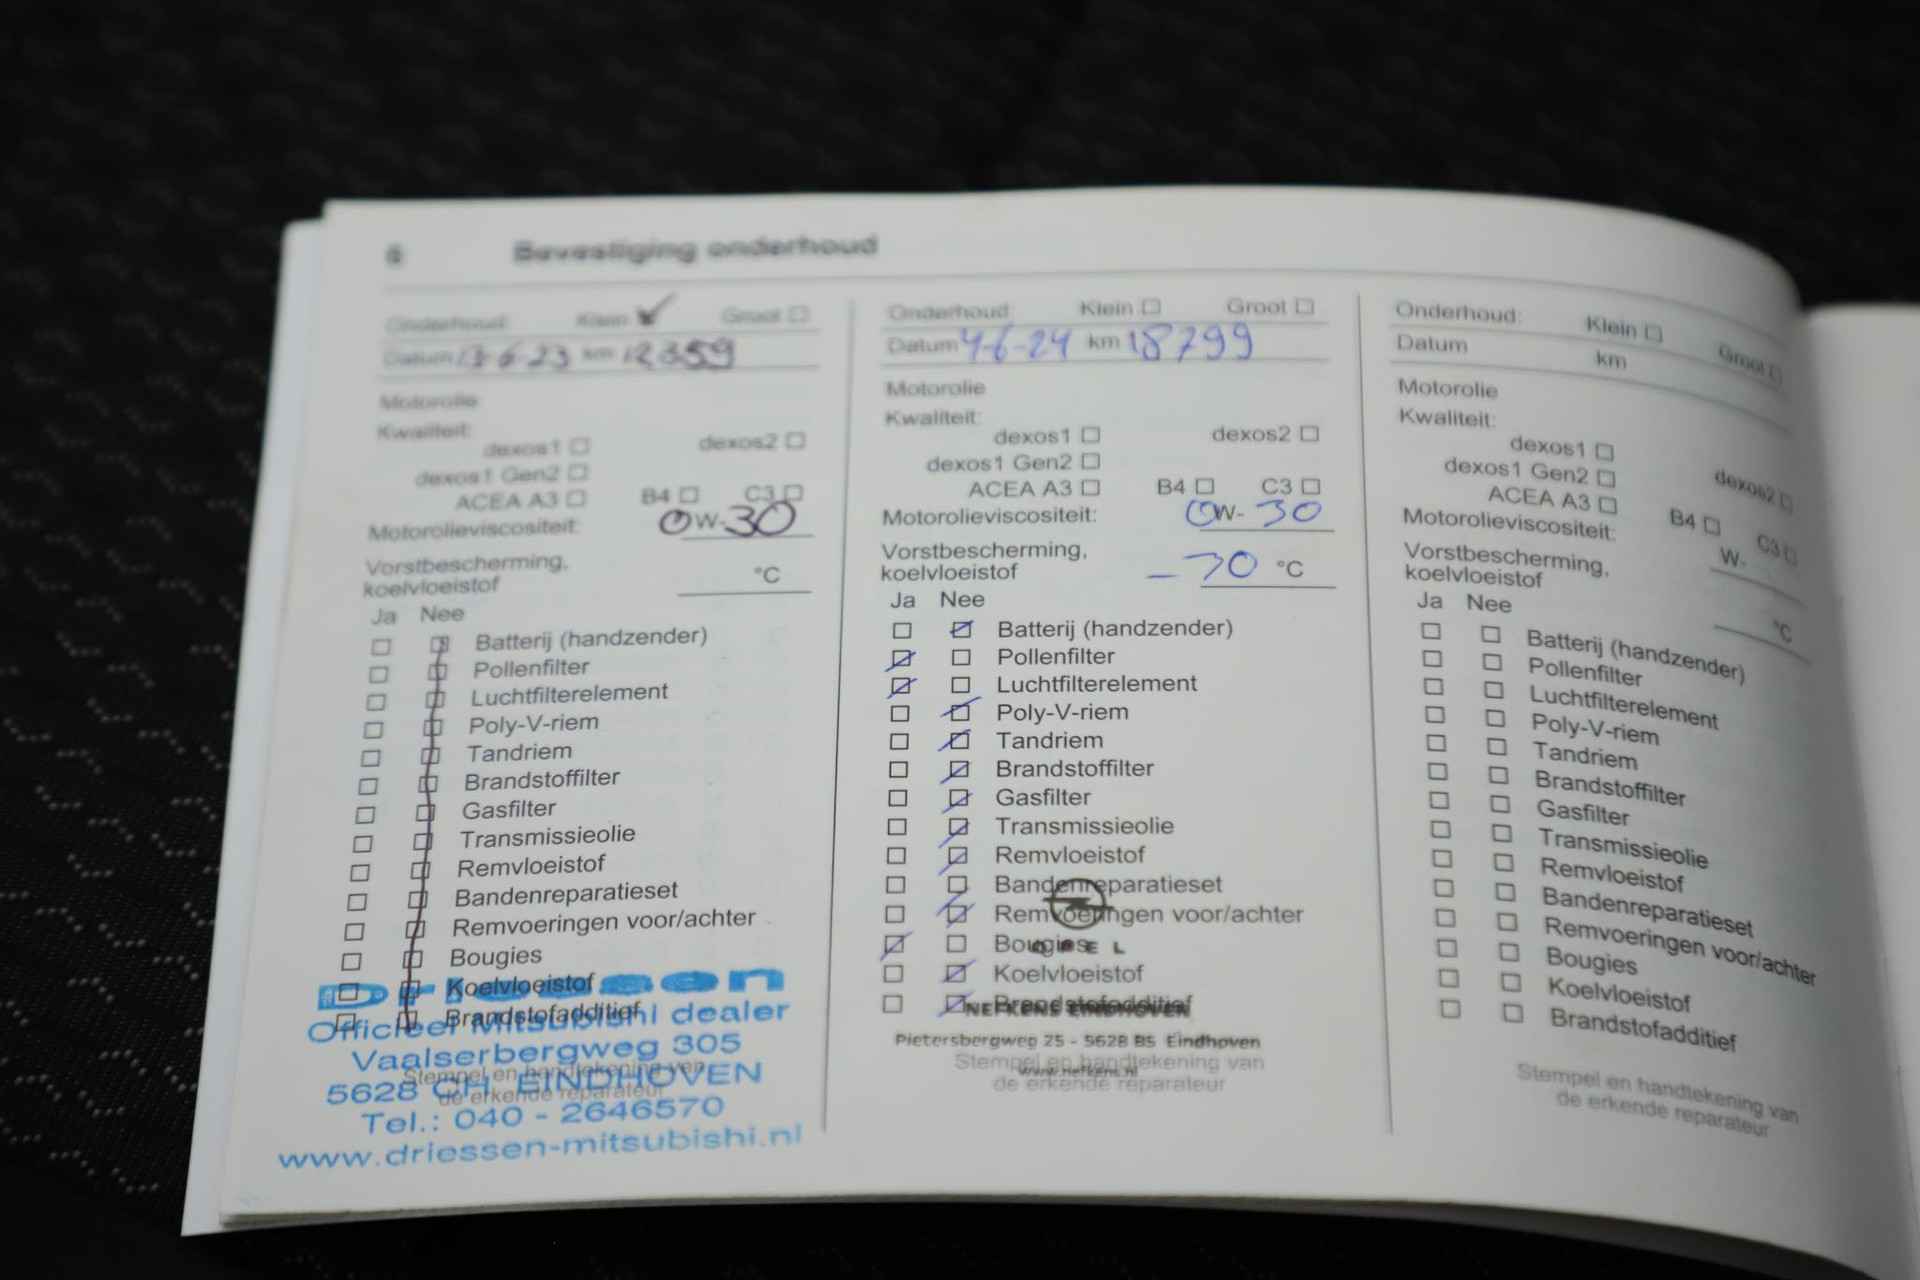 6 Bevestiging onderhoud
Onderhoud: Klein Groot
Datum 13-6-23 km 12359
Motorolie
Kwaliteit:
dexos1 dexos2
dexos1 Gen2
ACEA A3 B4 C3
Motorolieviscositeit: 0W-30
Vorstbescherming,
koelvloeistof °C
Ja Nee
Batterij (handzender)
Pollenfilter
Luchtfilterelement
Poly-V-riem
Tandriem
Brandstoffilter
Gasfilter
Transmissieolie
Remvloeistof
Bandenreparatieset
Remvoeringen voor/achter
Bougies
Koelvloeistof
Brandstofadditief
Driessen
Officieel Mitsubishi dealer
Vaalserbergweg 305
Stempel en handtekening van
5628 CH EINDHOVEN
de erkende reparateur
Tel.: 040 - 2646570
www.driessen-mitsubishi.nl
Onderhoud: Klein Groot
Datum 4-6-24 km 18799
Motorolie
Kwaliteit:
dexos1 dexos2
dexos1 Gen2
ACEA A3 B4 C3
Motorolieviscositeit: 0W-30
Vorstbescherming,
koelvloeistof -30 °C
Ja Nee
Batterij (handzender)
Pollenfilter
Luchtfilterelement
Poly-V-riem
Tandriem
Brandstoffilter
Gasfilter
Transmissieolie
Remvloeistof
Bandenreparatieset
Remvoeringen voor/achter
Bougies
OPEL
Koelvloeistof
Brandstofadditief
NEFKENS EINDHOVEN
Pietersbergweg 25 - 5628 BS Eindhoven
Stempel en handtekening van
www.nefkens.nl
de erkende reparateur
Onderhoud: Klein Groot
Datum km
Motorolie
Kwaliteit:
dexos1 dexos2
dexos1 Gen2
ACEA A3 B4 C3
Motorolieviscositeit: W-
Vorstbescherming,
koelvloeistof °C
Ja Nee
Batterij (handzender)
Pollenfilter
Luchtfilterelement
Poly-V-riem
Tandriem
Brandstoffilter
Gasfilter
Transmissieolie
Remvloeistof
Bandenreparatieset
Remvoeringen voor/achter
Bougies
Koelvloeistof
Brandstofadditief
Stempel en handtekening van
de erkende reparateur